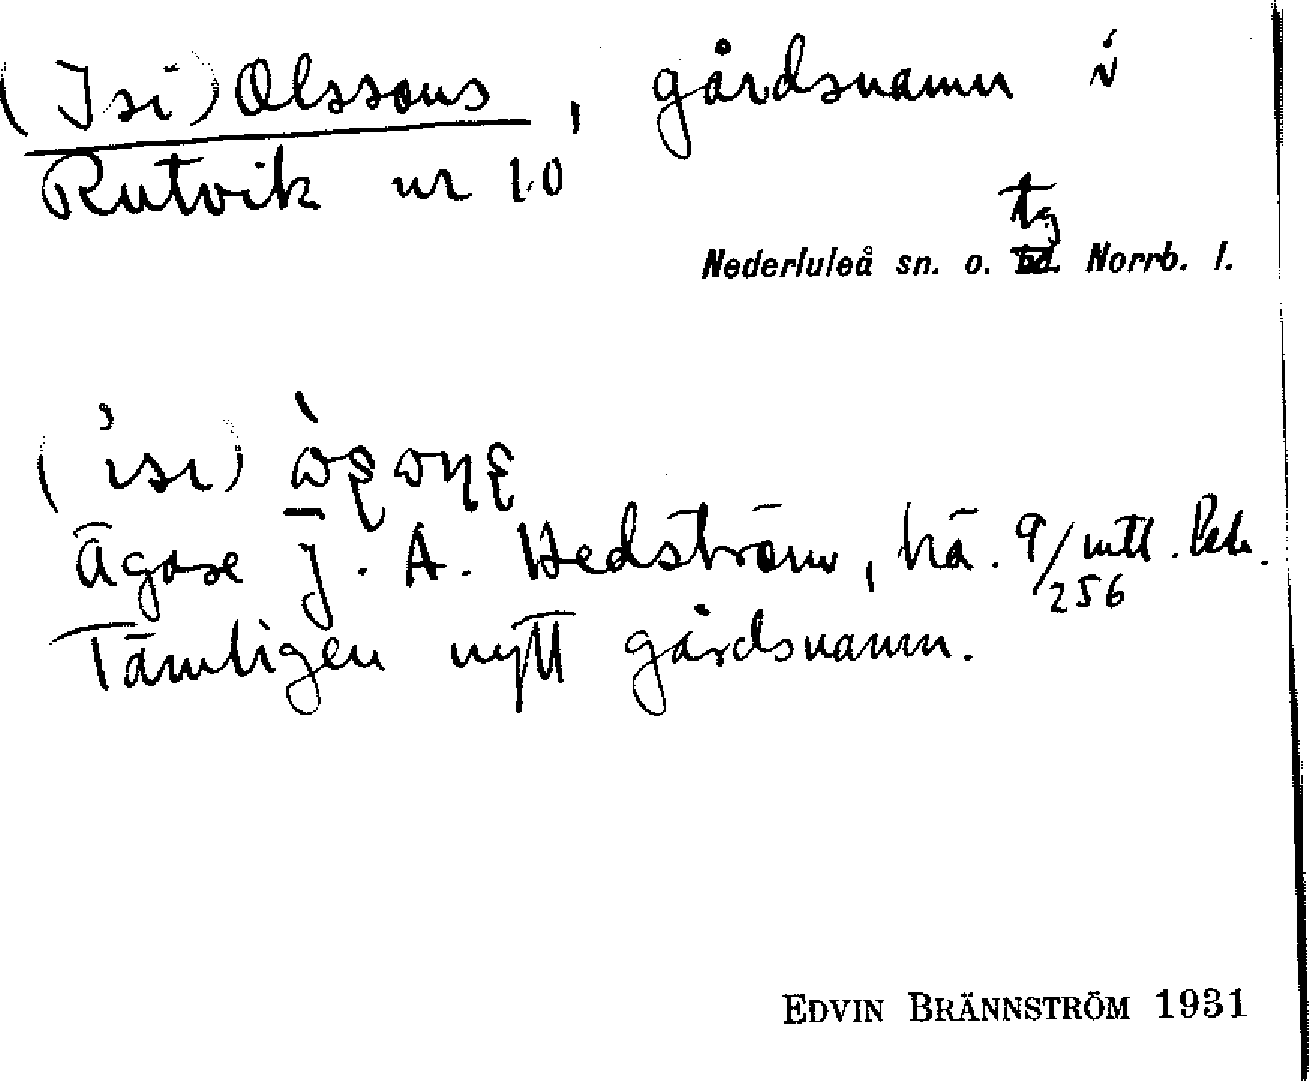 (Isi) Olssons, gårdsnamn i
Rutvik nr 10
tg
Nederluleå sn. o. Norrb. l.
(isi)
Ägare J. A. Hedström, hä. 9/256 mtl.
Tämligen nytt gårdsnamn.
EDVIN BRÄNNSTRÖM 1931